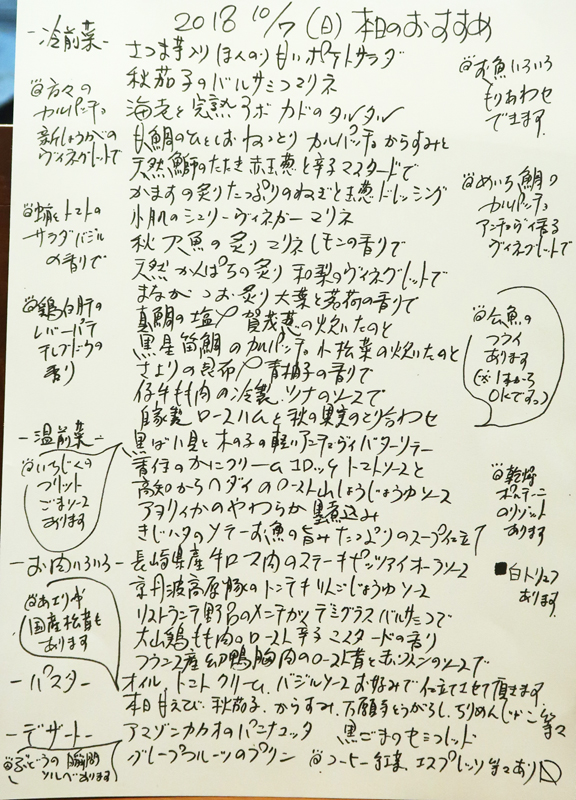 2018 10/7 (日) 本日のおすすめ
-冷前菜-
さつま芋入り ほんのり甘いポテトサラダ
秋茄子のバルサミコマリネ
海老と完熟アボカドのタルタル
甘鯛のひとしお ねっとり カルパッチョ からすみと
天然鰤のたたき 赤玉葱と辛子マスタードで
かますの炙り たっぷりのねぎと玉葱ドレッシング
小肌のシェリーヴィネガーマリネ
秋刀魚の炙りマリネ レモンの香りで
天然かんぱちの炙り 和梨のヴィネグレットで
まながつお炙り 大葉と茗荷の香りで
真鯛の塩〆 賀茂葱の炊いたのと
黒星笛鯛のカルパッチョ 小松菜の炊いたのと
さよりの昆布〆 青柚子の香りで
仔牛もも肉の冷製 ツナのソースで
自家製 ロースハムと秋の果実のとり合わせ
@方々の
カルパッチョ
新しょうがの
ヴィネグレットで
@蛸とトマトの
サラダ バジル
の香りで
@鶏白肝の
レバーパテ
の
香り
@お魚いろいろ
もりあわせ
できます
@めいち鯛の
カルパッチョ
アンチョヴィ香る
ヴィネグレットで
フライ
あります
OKですっ)
-温前菜-
黒ばい貝と木の子の軽いアンチョヴィバターソテー
香住のかにクリームコロッケ トマトソースと
高知からヘダイのロースト 山しょうじょうゆソース
アオリイカのやわらか墨煮込み
きじハタのソテー お魚の旨みたっぷりのスープ仕立て
@いちじくの
フリット
ごまソース
あります
@乾燥
ポルチーニ
のリゾット
あります
■白トリュフ
あります.
-お肉いろいろ-
長崎県産牛ロース肉のステーキ ピッツァイオーラソース
京丹波高原豚のトンテキ りんごじょうゆソース
リストランテ野呂のメンチカツ デミグラスバルサミコで
大山鶏もも肉のロースト 辛子マスタードの香り
フランス産幼鴨胸肉のロースト 青と赤ワインのソースで
国産松茸も
あります
-パスタ-
オイル トマト クリーム、バジルソース お好みで仕立てさせて頂きます.
本日 甘えび、秋茄子、からすみ、万願寺とうがらし、ちりめんじゃこ 等々
-デザート-
アマゾンカカオのパンナコッタ 黒ごまのセミフレッド
グレープフルーツのプリン @コーヒー 紅茶、エスプレッソ 等々あり
@ぶどうの瞬間
ソルベあります